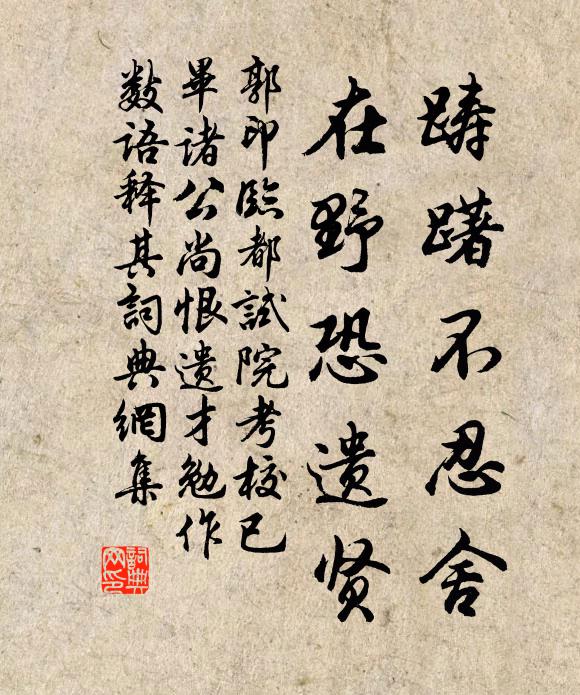 踌躇不忍舍
在野恐遗贤
郭印臨都試院考校已
畢诸公尚恨遗才勉作
数语释其詞典網集
詞典
网印